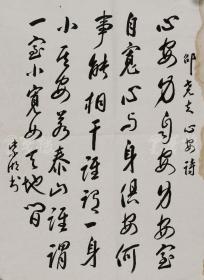 邵堯夫 心安诗
心安身自安身安室
自寬心与身俱安何
事能相干誰謂一身
小其安若泰山誰謂
一室小寬如天地間